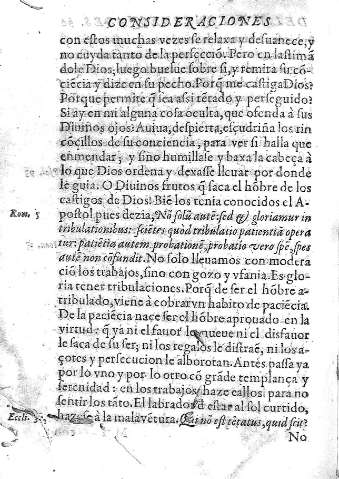 CONSIDERACIONES
con estos muchas vezes se relaxa y desuanece, y
no cuyda tanto de la perfecció. Pero en lastimá
dole Dios, luego buelue sobre si, y remira su có-
ciécia y dize en su pecho. Porq̃ me castiga Dios?
Porque permite q̃ sea assi tétado y perseguido?
Si ay en mi alguna cosa oculta, que ofenda à sus
Diuinos ojos? Auiua, despierta, escudriña los rin
cócillos de su conciencia, para ver si halla que
enmendar; y sino humillase y baxa la cabeça à
lo que Dios ordena y dexasse lleuar por donde
le guia. O Diuinos frutos q̃ saca el hóbre de los
castigos de Dios! Bié los tenia conocidos el A-
Rom. 5
postol pues dezia, Nō solū autē: sed & gloriamur in
tribulationibus: sciētes quòd tribulatio patientiā opera
tur: patiētia autem probationē, probatio vero spē, spes
autē non cōfundit. No solo lleuamos con modera
ció los trabajos, sino con gozo y vfania. Es glo-
ria tener tribulaciones. Porq̃ de ser el hóbre a-
tribulado, viene à cobrar vn habito de paciécia.
De la paciécia nace ser el hóbre aprouado en la
virtud: q̃ ya ni el fauor lo mueue ni el disfauor
le saca de su ser; ni los regalos le distraé, ni los a-
çotes y persecucion le alborotan. Antes passa ya
por lo vno y por lo otro có gráde templança y
serenidad: en los trabajos haze callos para no
sentir los táto. El labrador estar al sol curtido,
Eccli.
haze se à la mala vétura. Qui nō est tētatus, quid scit?
No